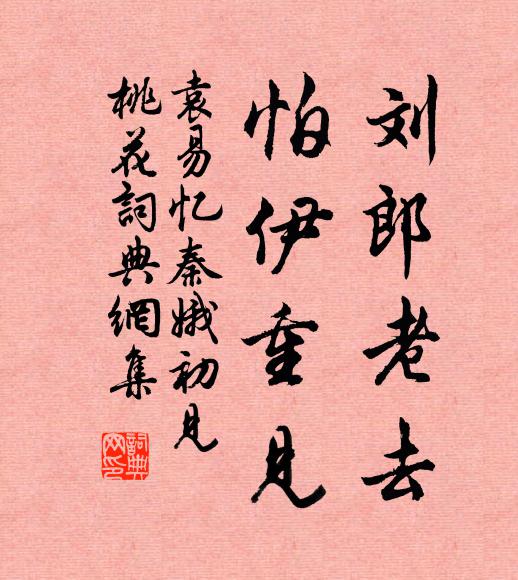 刘郎老去
怕伊重见
袁易忆秦娥初见
桃花詞典網集
詞典
网印